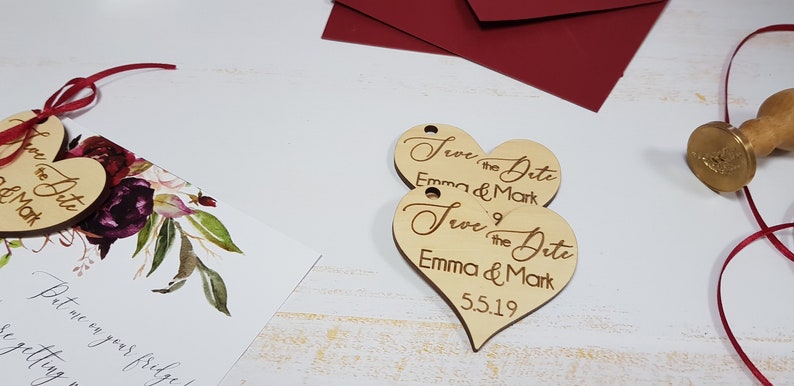 Save
the Date
& Mark
Put me on your fridge!
getting
Save the Date
Emma & Mark
9
Save the Date
Emma & Mark
5.5.19